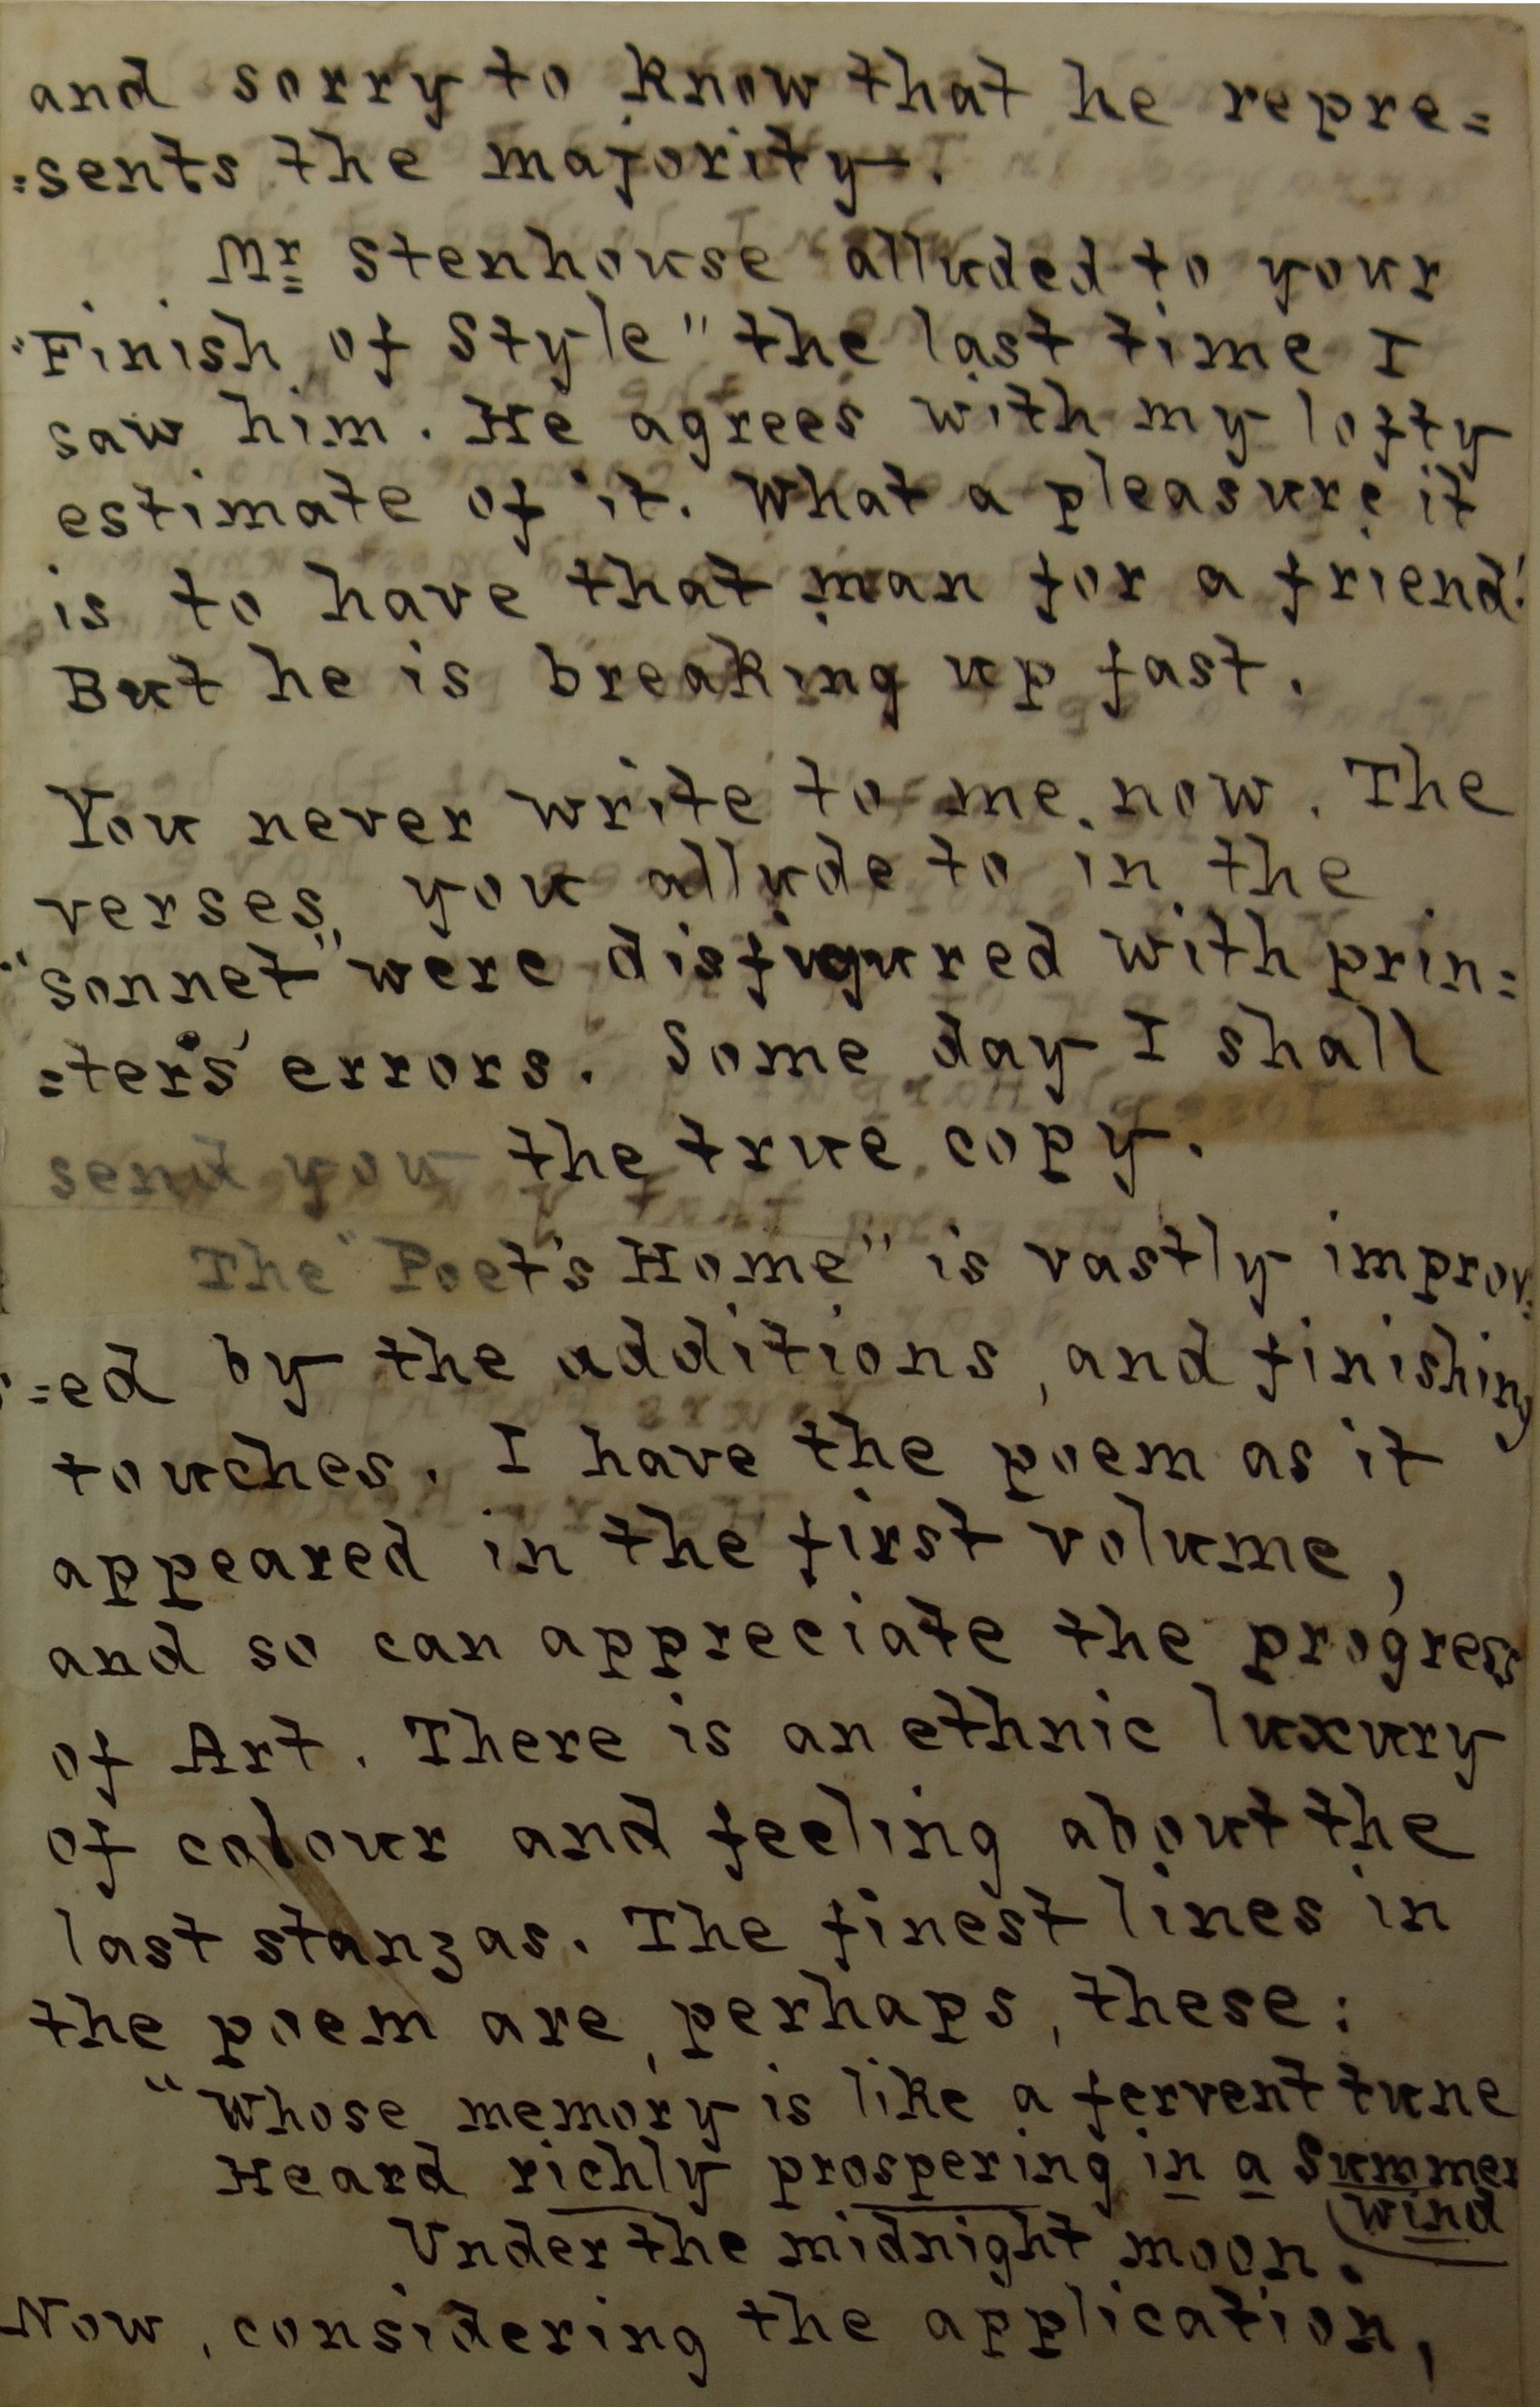 and sorry to know that he repre=
=sents the majority.
Mr Stenhouse alluded to your
"Finish of Style" the last time I
saw him. He agrees with my lofty
estimate of it. What a pleasure it
is to have that man for a friend!
But he is breaking up fast.
You never write to me now. The
verses you allude to in the
"sonnet" were disfigured with prin=
=ter's errors. Some day I shall
send you the true copy.
The "Poet's Home" is vastly improv=
=ed by the additions, and finishing
touches. I have the poem as it
appeared in the first volume,
and so can appreciate the progress
of Art. There is an ethnic luxury
of colour and feeling about the
last stanzas. The finest lines in
the poem are, perhaps, these:
"Whose memory is like a fervent tune
Heard richly prospering in a Summer
wind
Under the midnight moon.
Now, considering the application,